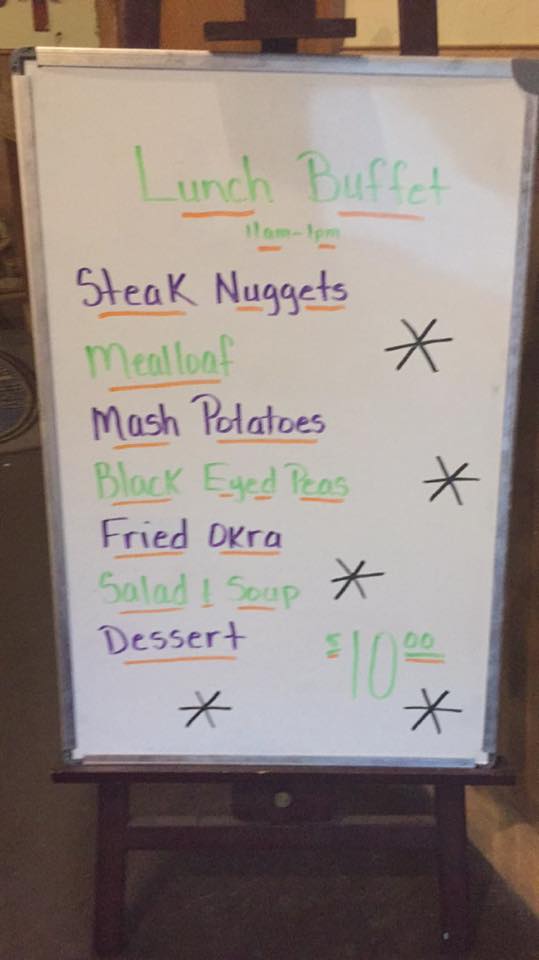 Lunch Buffet
11am-1pm
Steak Nuggets
Mealloaf
Mash Potatoes
Black Eyed Peas
Fried Okra
Salad & Soup
Dessert
$10.00